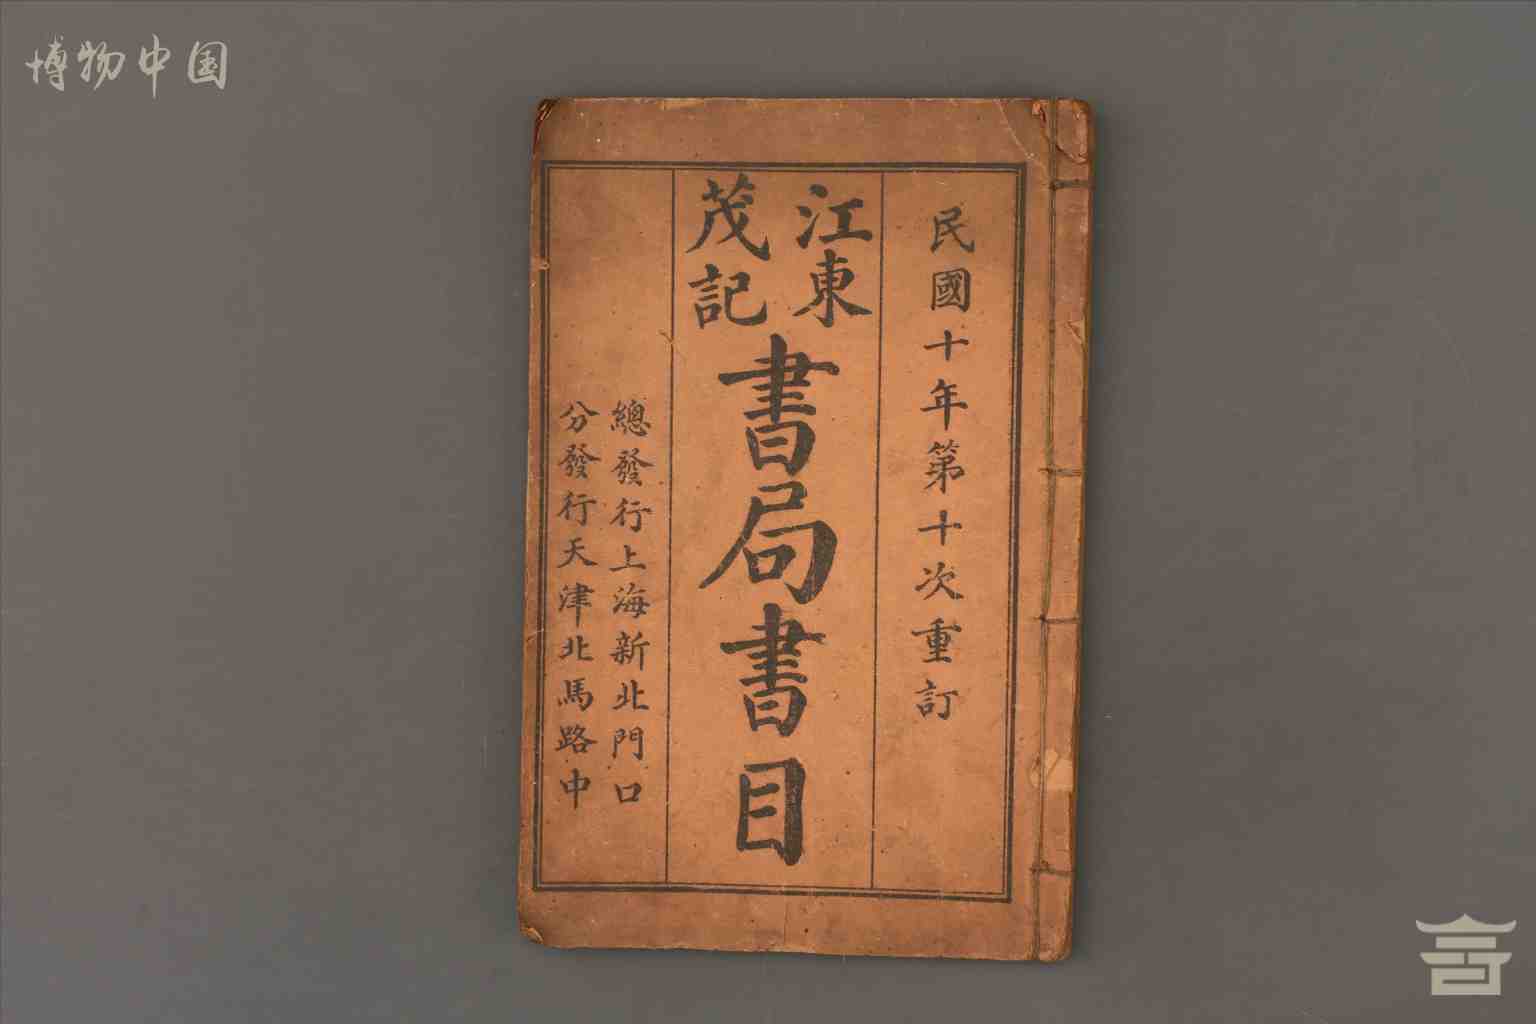 博物中国
民國十年第十次重訂
江東
茂記
書局書目
總發行上海新北門口
分發行天津北馬路中